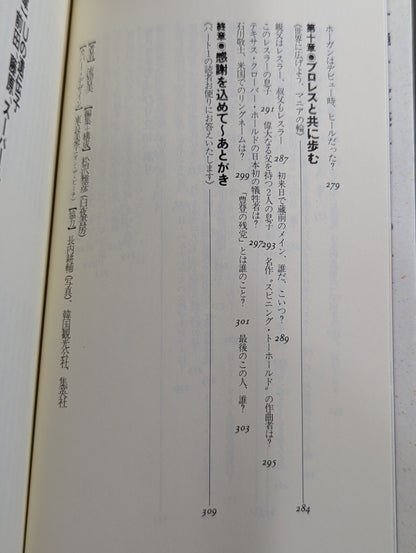 ホーガンはデビュー時、ヒールだった？ 279
第十章●プロレスと共に歩む 284
《世界に広げよう、マニアの輪》
親父はレスラー、叔父もレスラー 287 初来日で蔵前のメイン、誰だ、こいつ？ 289
このレスラーの息子 291 偉大なる父を持つ2人の息子 293 名作“スピニング・トーホールド”の作曲者は？ 295
テキサス・クローバー・ホールドの日本初の犠牲者は？ 297
石川敬士、米国でのリングネームは？ 299 「豊登の残党」とは誰のこと？ 301 最後のこの人、誰？ 303
終章●感謝を込めて〜あとがき 309
《パートⅠの読者お便りにお答えいたします》
【編集＋構成】松沢雅彦（白夜書房）
【協力】長内耕輔（写真）、韓国観光公社、集英社